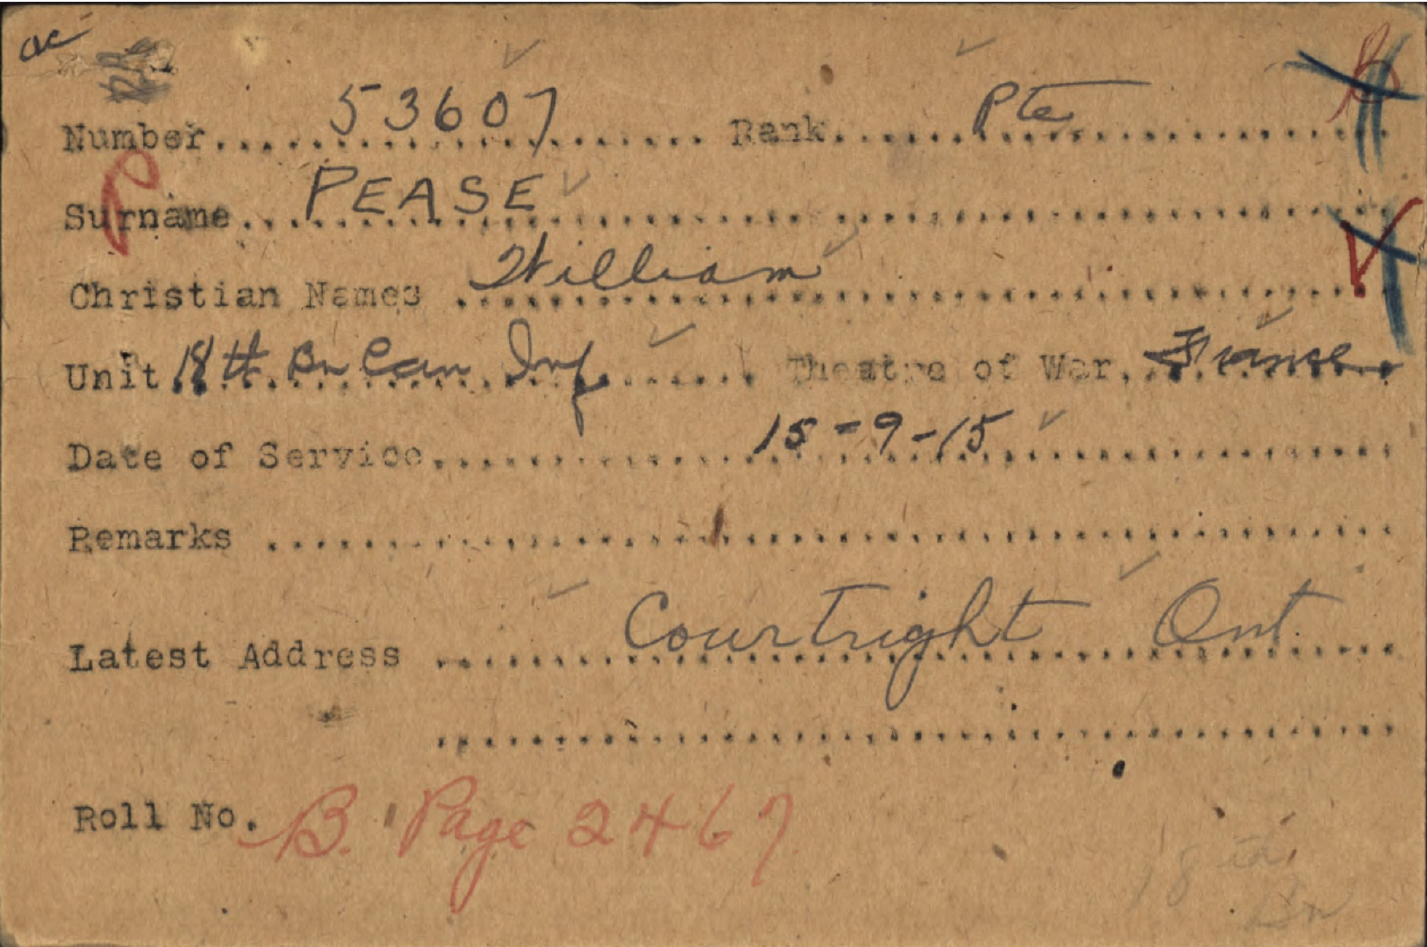 ac
Number 53607 Rank Pte
P
Surname PEASE
V
Christian Names William
Unit 18th Bn Can Inf Theatre of War France
Date of Service 15-9-15
Remarks
Latest Address Courtright Ont.
Roll No. B. Page 2467
18th
Bn